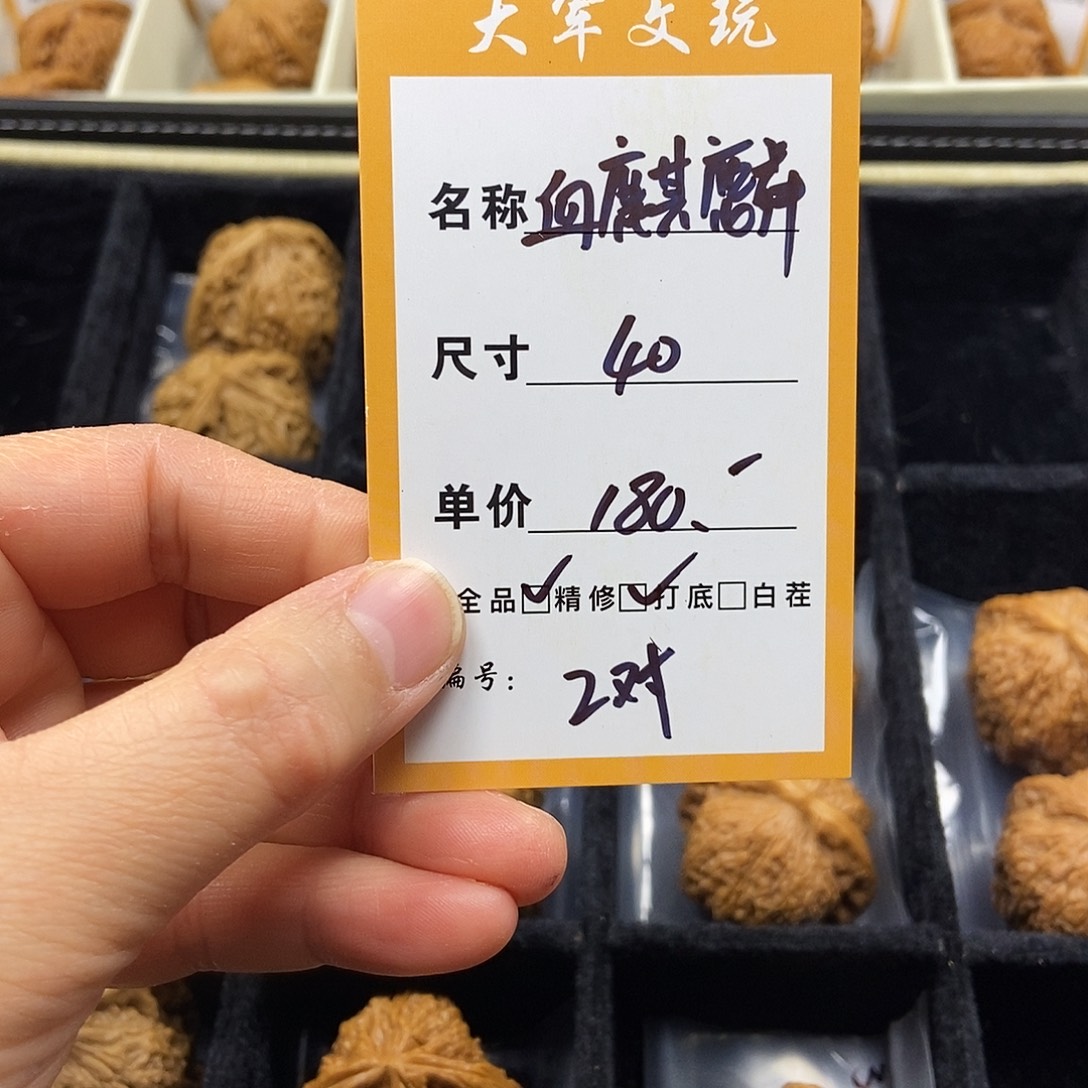 大军文玩
名称 血麒麟
尺寸 40
单价 180、-
全品 ☑精修 ☑打底 □白茬
编号： 2对